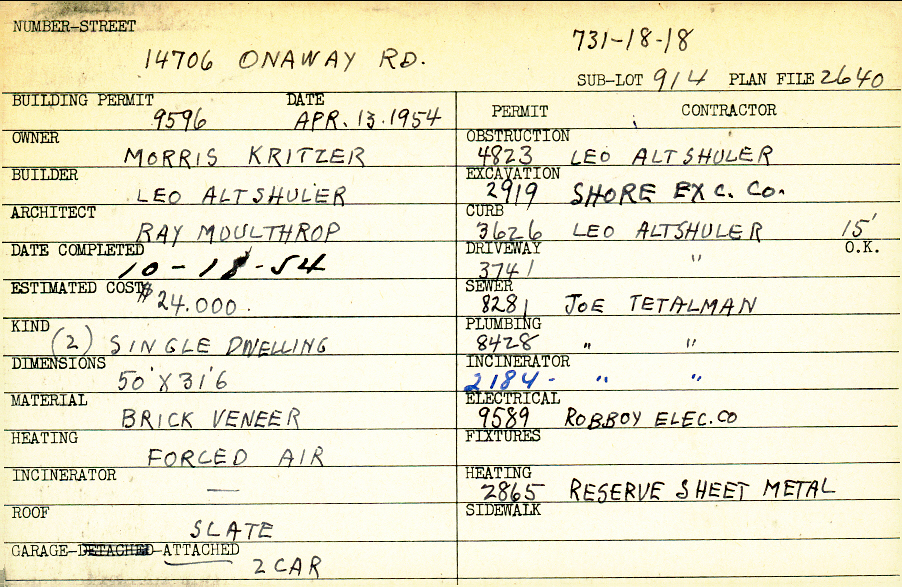 NUMBER-STREET
14706 ONAWAY RD.
731-18-18
SUB-LOT 914 PLAN FILE 2640
BUILDING PERMIT DATE
9596 APR. 13. 1954
OWNER
MORRIS KRITZER
BUILDER
LEO ALTSHULER
ARCHITECT
RAY MOULTHROP
DATE COMPLETED
10-18-54
ESTIMATED COST
$24.000.
KIND
(2) SINGLE DWELLING
DIMENSIONS
50'X31'6
MATERIAL
BRICK VENEER
HEATING
FORCED AIR
INCINERATOR
—
ROOF
SLATE
GARAGE-DETACHED-ATTACHED
2 CAR
PERMIT CONTRACTOR
OBSTRUCTION
4823 LEO ALTSHULER
EXCAVATION
2919 SHORE EXC. CO.
CURB
3626 LEO ALTSHULER 15'
DRIVEWAY O.K.
3741 "
SEWER
8281 JOE TETALMAN
PLUMBING
8428 " "
INCINERATOR
2184- " "
ELECTRICAL
9589 ROBBOY ELEC. CO
FIXTURES
HEATING
2865 RESERVE SHEET METAL
SIDEWALK